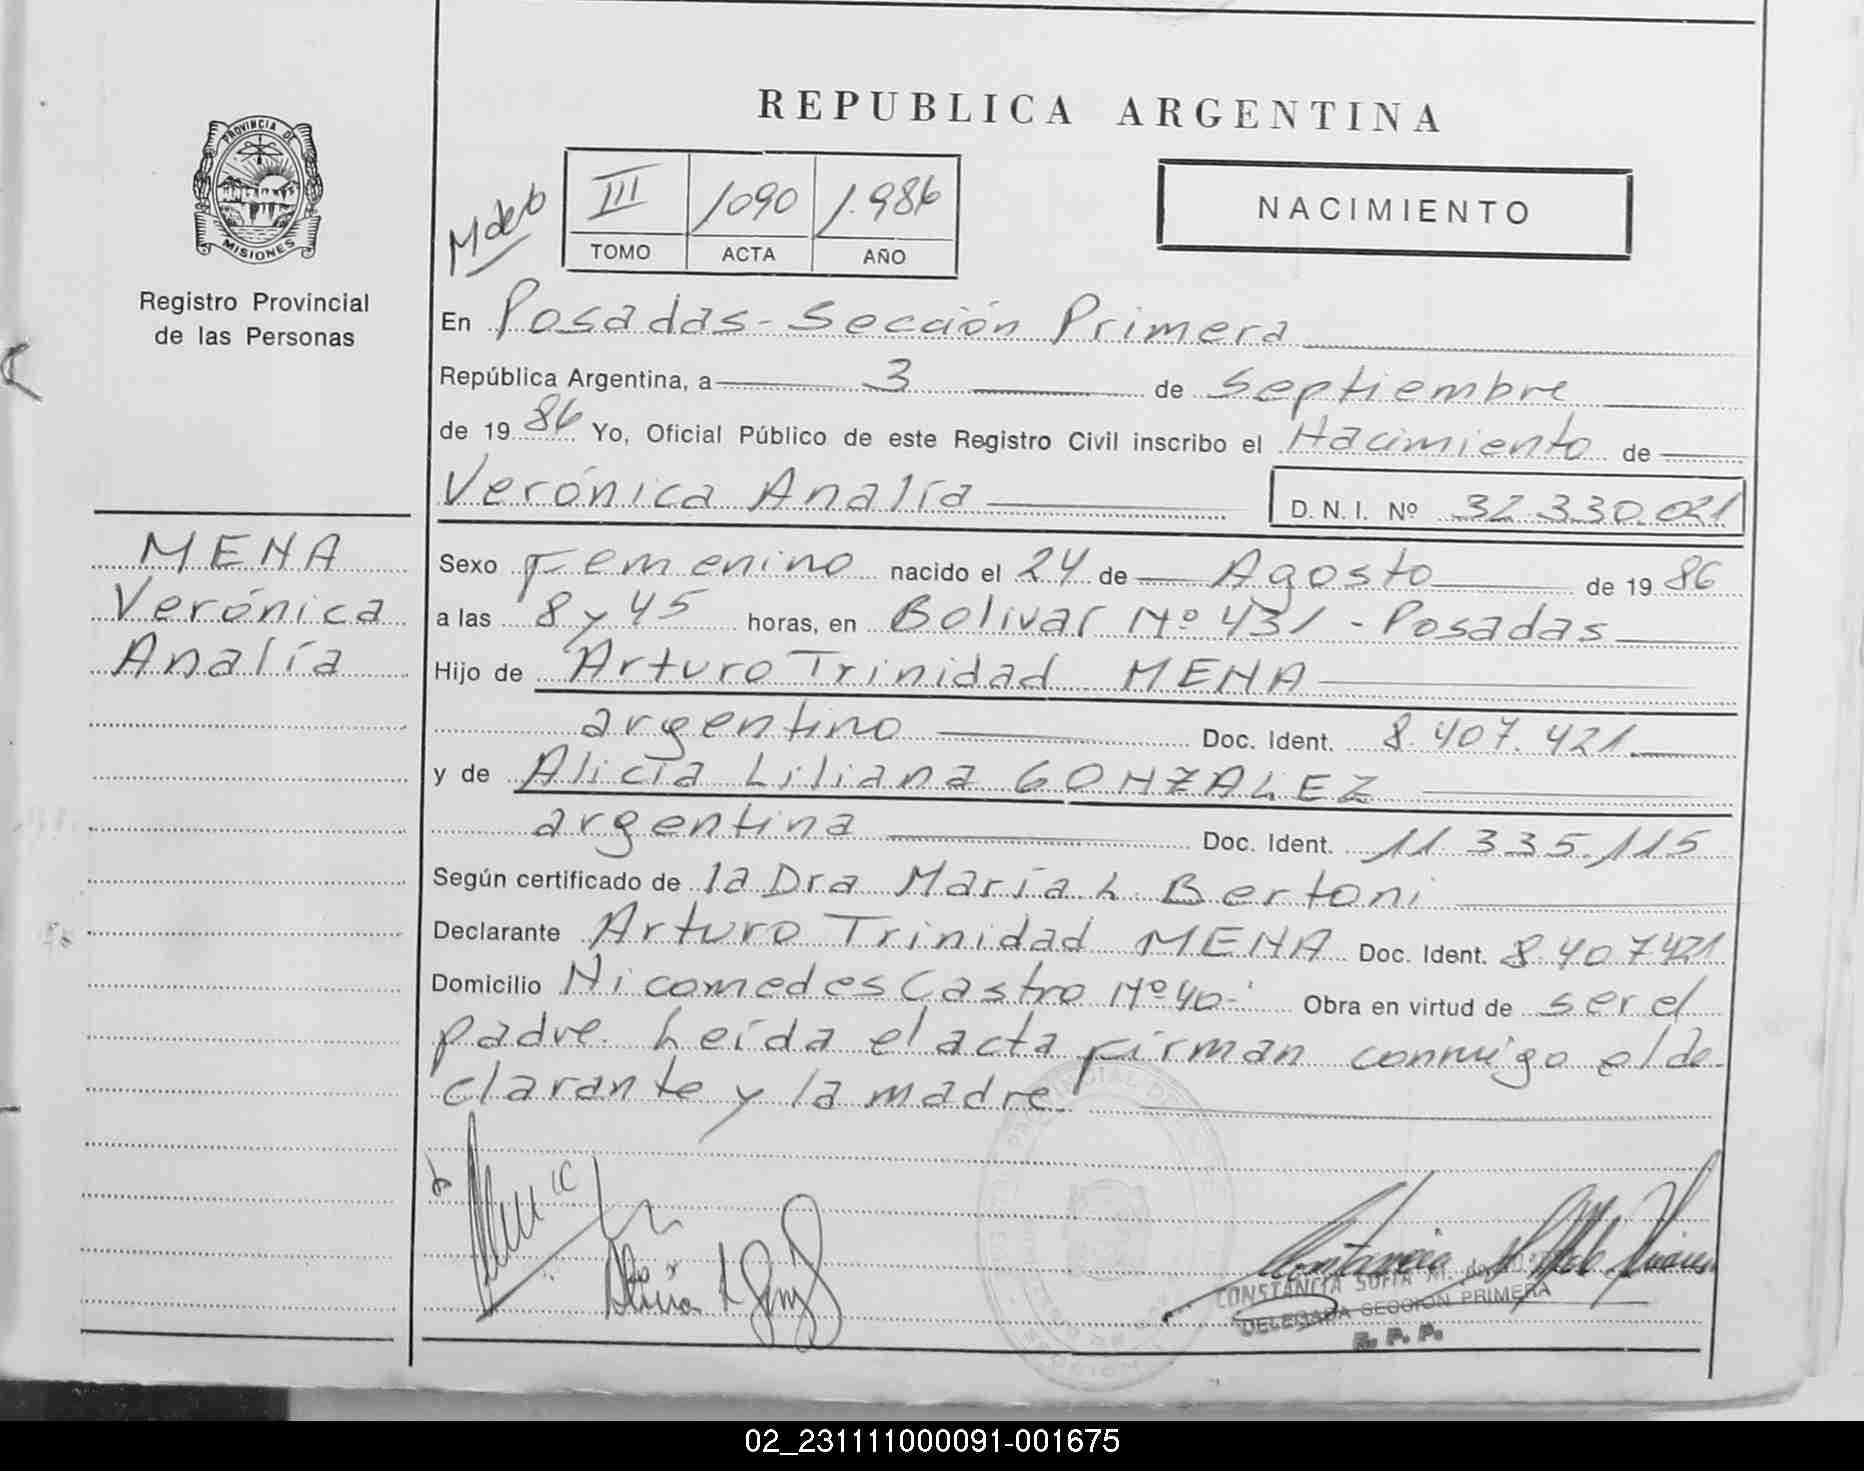 REPUBLICA ARGENTINA
PROVINCIA DE
MISIONES
Registro Provincial
de las Personas
III 1090 1.986
TOMO ACTA AÑO
NACIMIENTO
En Posadas - Sección Primera
República Argentina, a 3 de Septiembre
de 1986 Yo, Oficial Público de este Registro Civil inscribo el Nacimiento de
Verónica Analía D.N.I. Nº 32.330.021
MENA
Verónica
Analía
Sexo Femenino nacido el 24 de Agosto de 1986
a las 8 y 45 horas, en Bolivar Nº 431 - Posadas
Hijo de Arturo Trinidad MENA
argentino Doc. Ident. 8.407.421
y de Alicia Liliana GONZALEZ
argentina Doc. Ident. 11.335.115
Según certificado de la Dra María L. Bertoni
Declarante Arturo Trinidad MENA Doc. Ident. 8.407421
Domicilio Nicomedes Castro Nº 40.- Obra en virtud de ser el
padre. Leída el acta firman conmigo el de-
clarante y la madre.
CONSTANCIA SOFIA M. de
DELEGADA SECCION PRIMERA
R. P. P.
02_231111000091-001675